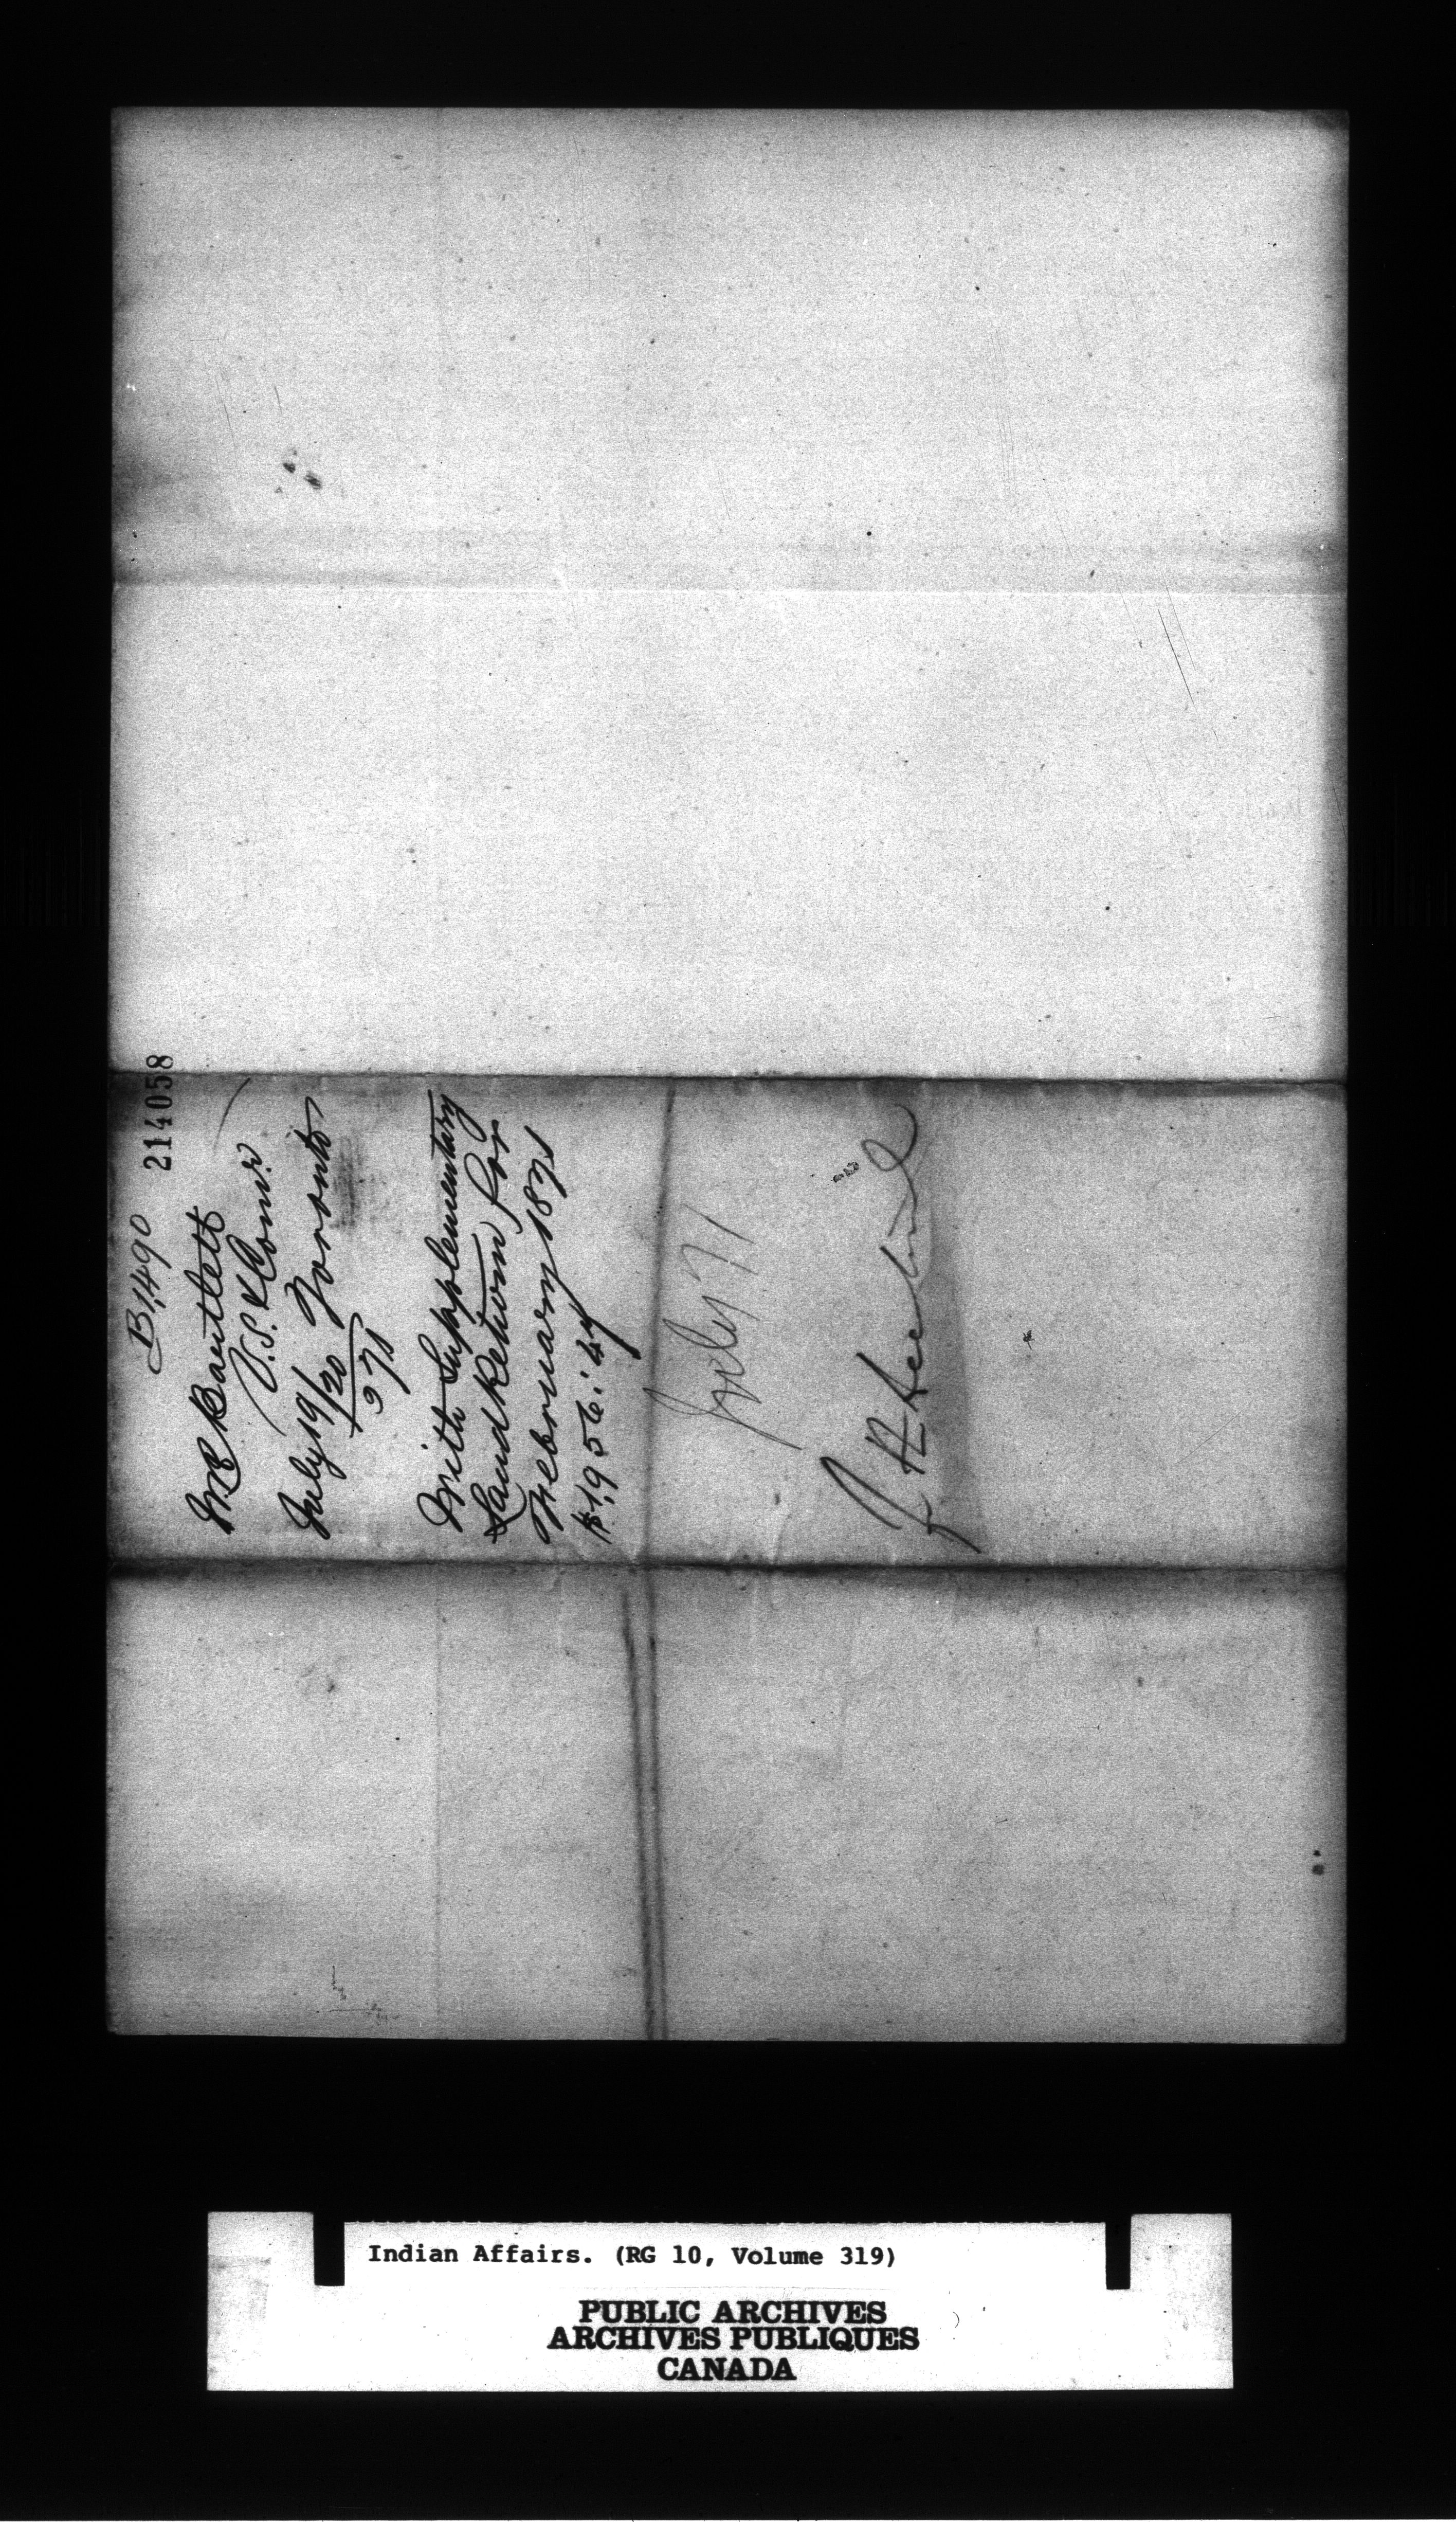 214058
B1490
W.R. Bartlett
V.S. & Comr.
July 19/20 Toronto
371
With Supplementary
Land Return for
February 1871
$1,956:47
July 71
Indian Affairs. (RG 10, Volume 319)
PUBLIC ARCHIVES
ARCHIVES PUBLIQUES
CANADA